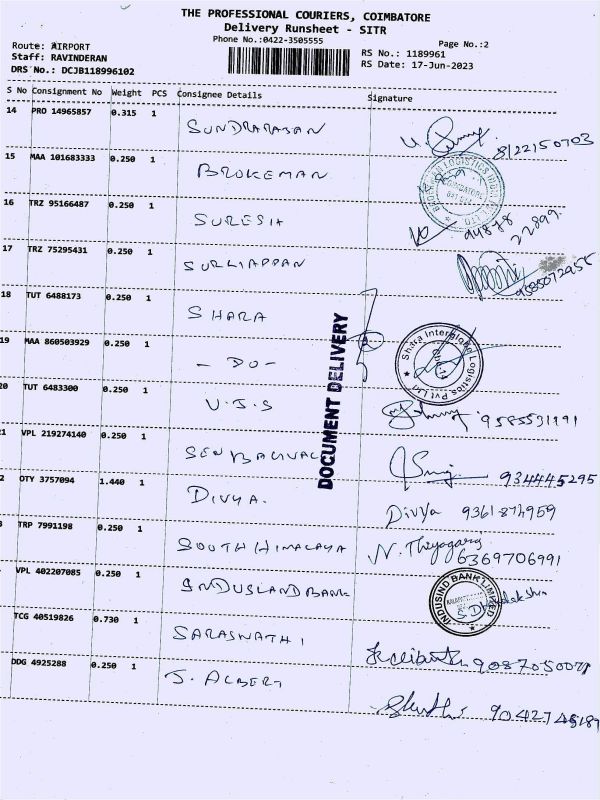 THE PROFESSIONAL COURIERS, COIMBATORE
Delivery Runsheet - SITR
Phone No.:0422-3505555
Page No.:2
Route: AIRPORT
RS No.: 1189961
Staff: RAVINDERAN
RS Date: 17-Jun-2023
DRS No.: DCJB118996102
S No Consignment No Weight PCS Consignee Details Signature
14 PRO 14965857 0.315 1
SUNDRARAJAN 8122150703
15 MAA 101683333 0.250 1
BROKEMAN
COIMBATORE
16 TRZ 95166487 0.250 1
SURESH
17 TRZ 75295431 0.250 1
SURLIAPPAN
18 TUT 6488173 0.250 1
SHARA
DOCUMENT DELIVERY
19 MAA 860503929 0.250 1
- DO -
Shara Interglobal Logistics Pvt Ltd
20 TUT 6483300 0.250 1
V.J.S
1 VPL 219274140 0.250 1
934445295
2 OTY 3757094 1.440 1
DIVYA. Divya
3 TRP 7991198 0.250 1
SOUTH HIMALAYA N. Thiyagaraj 6369706991
VPL 402207085 0.250 1
INDUSLAND BANK
INDUSIND BANK LIMITED
TCG 40519826 0.730 1
SARASWATHI
DDG 4925288 0.250 1
J. ALBERT